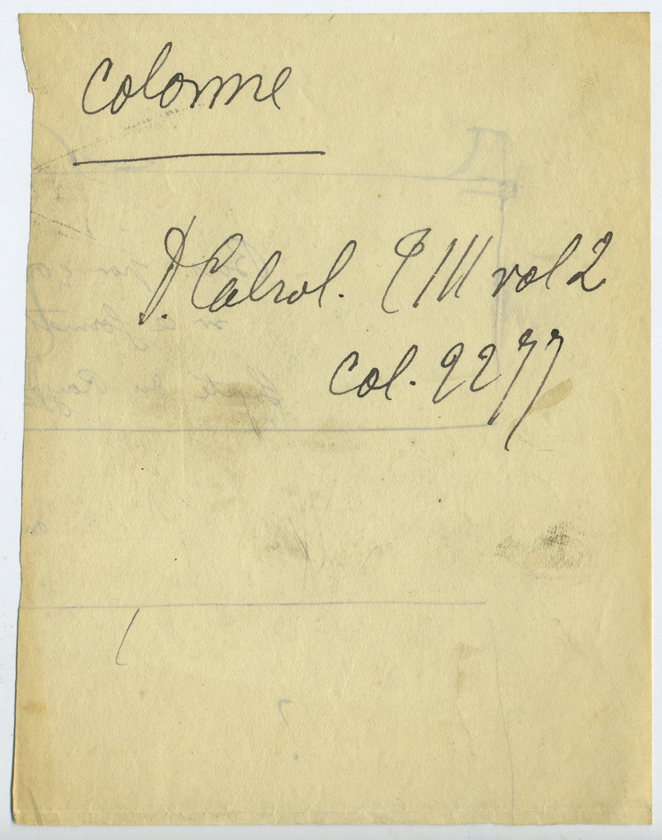 Colonne
D. Cabrol. T III vol 2
col. 2277